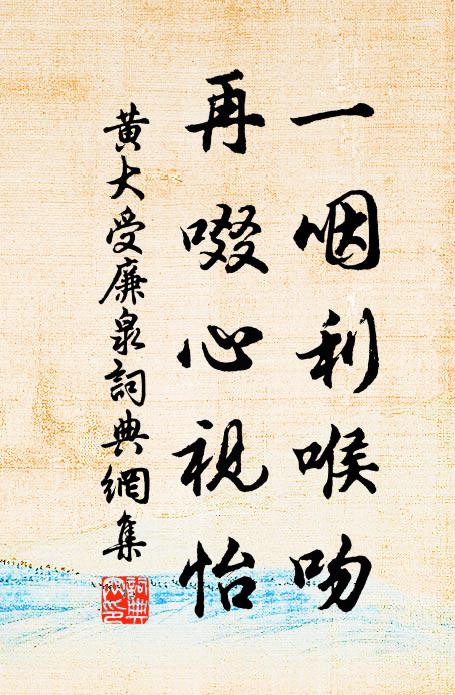 一咽利喉吻
再啜心視怡
黃大受廉泉詞典網集